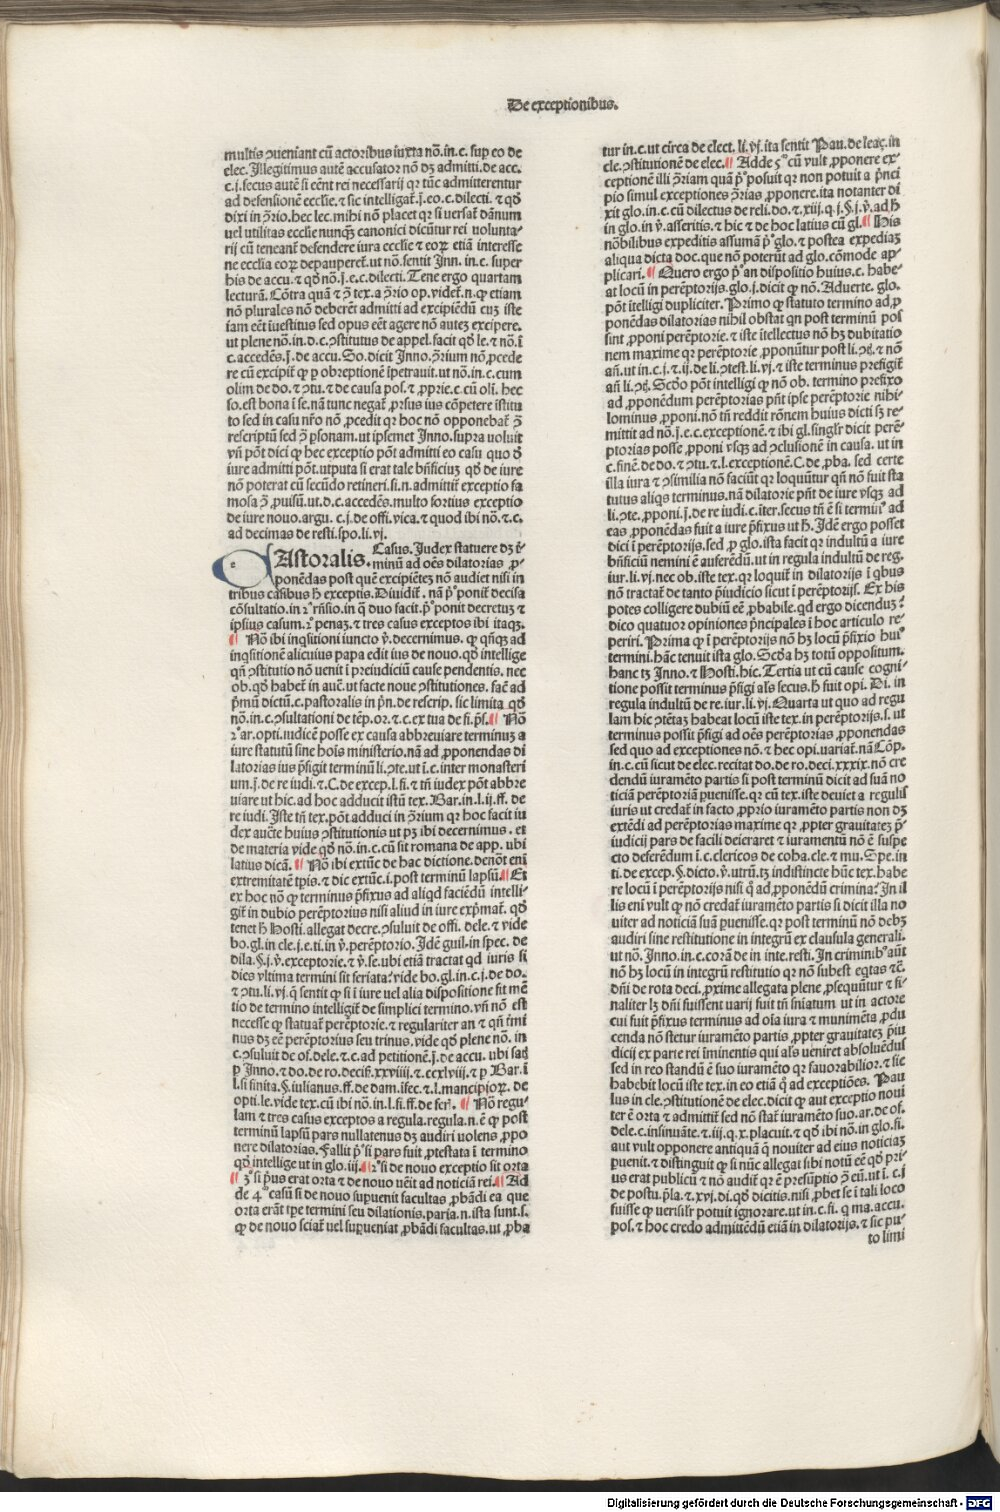 De exceptionibus.
multis ꝯueniant cũ actoribus iuxta nõ.in.c. sup eo de
elec. Illegitimus autẽ accusator nõ dꝫ admitti. de acc.
c.j. secus autẽ si eẽnt rei necessarij qꝛ tũc admitterentur
ad defensionẽ ecclie, ⁊ sic intelligat̃.j.eo.c.dilecti. ⁊ qð
dixi in ꝯ̃rio. hec lec. mihi nõ placet qꝛ si uersat̃ dãnum
uel utilitas ecclie nunqꝫ canonici dicũtur rei uolunta-
rij cũ teneant̃ defendere iura ecclie ⁊ eoꝝ etiã interesse
ne ecclia eoꝝ depauperet̃. ut nõ. sentit Inn. in c. super
his de accu. ⁊ qð nõ.j.e.c.dilecti. Tene ergo quartam
lecturã. Cõtra quã ⁊ ꝯ̃ tex. a ꝯ̃rio op. videt̃.n.ꝙ etiam
nõ plurales nõ deberẽt admitti ad excipiẽdũ cuꝫ iste
iam eẽt iuestitus sed opus eẽt agere nõ auteꝫ excipere.
ut plene nõ.in.d.c.ꝯstitutus de appel. facit qð le. ⁊ nõ.ĩ
c. accedẽs.j. de accu. So. dicit Inno. ꝯ̃rium nõ ꝓcede
re cũ excipit̃ ꝙ p obreptionẽ ĩpetrauit. ut nõ.in.c.cum
olim de do. ⁊ ꝯtu. ⁊ de causa pos. ⁊ ꝓprie.c.cũ oli. hec
so. est bona ĩ se. nã tunc negat̃ ꝓrsus ius cõpetere istitu
to sed in casu nr̃o nõ ꝓcedit qꝛ hoc nõ opponebat̃ ꝯ̃
rescriptũ sed ꝯ̃ psonam. ut ipsemet Inno. supra uoluit
vñ põt dici ꝙ hec exceptio põt admitti eo casu quo ð
iure admitti põt. utputa si erat tale bñficiuꝫ qð de iure
nõ poterat cũ secũdo retineri. si.n. admittit̃ exceptio fa
mosa ꝯ̃ ꝓuisũ. ut.d.c. accedẽs. multo fortius exceptio
de iure nouo. argu. c.j. de offi. vica. ⁊ quod ibi nõ. ⁊ c.
ad decimas de resti. spo. li. vj.
Astoralis. Casus. Judex statuere dꝫ t̃-
minũ ad oẽs dilatorias ꝓ-
ponẽdas post quẽ excipiẽteꝫ nõ audiet nisi in
tribus casibus h̃ exceptis. Diuidit̃. nã p° ponit̃ decisa
cõsultatio. in 2° rñsio. in q̃ duo facit. p° ponit decretuꝫ ⁊
ipsius casum. 2° penaꝫ. ⁊ tres casus exceptos ibi itaqꝫ.
¶ Nõ ibi inqsitioni iuncto v̾. decernimus. ꝙ qñqꝫ ad
inqsitionẽ alicuius papa edit ius de nouo. qð intellige
qñ ꝯstitutio nõ uenit ĩ preiudiciũ cause pendentis. nec
ob. qð habet̃ in auc̃. ut facte noue ꝯstitutiones. faẽ ad
p̃mũ dictũ. c. pastoralis in pñ. de rescrip. sic limita qð
nõ.in.c.ꝯsultationi de tẽp. or. ⁊ c. ex tua de fi. p̃s. ¶ Nõ
2° ar. opti. iudicẽ posse ex causa abbreuiare terminuꝫ a
iure statutũ sine hois ministerio. nã ad ꝓponendas di
latorias ius p̃figit terminũ li. ꝯte. ut ĩ.c. inter monasteri
um.j. de re iudi. ⁊ C. de excep. l. fi. ⁊ tñ iudex põt abbre
uiare ut hic. ad hoc adducit istũ tex. Bar. in l. ij. ff. de
re iudi. Iste tñ tex. põt adduci in ꝯ̃rium qꝛ hoc facit iu
dex auc̃te huius ꝯstitutionis ut pꝫ ibi decernimus. et
de materia vide qð nõ.in.c. cũ sit romana de app. ubi
latius dicã. ¶ Nõ ibi extũc de hac dictione. denõt eni
extremitatẽ tp̃is. ⁊ dic extũc.i. post terminũ lapsũ. ¶ Et
ex hoc nõ ꝙ terminus p̃fixus ad aliqd faciẽdũ intelli-
git̃ in dubio perẽptorius nisi aliud in iure exp̃mat̃. qð
tenet h̃ Hosti. allegat decre. ꝯsuluit de offi. dele. ⁊ vide
bo. gl. in cle. j. e. ti. in v̾. perẽptorio. Idẽ guil. in spec. de
dila. §. j. v̾. exceptorie. ⁊ v̾. se. ubi etiã tractat qd iuris si
dies vltima termini sit feriata: vide bo. gl. in c. j. de do.
⁊ ꝯtu. li. vj. q̃ sentit ꝙ si ĩ iure vel alia dispositione fit mẽ
tio de termino intelligit̃ de simplici termino. vñ nõ est
necesse ꝙ statuat̃ perẽptorie. ⁊ regulariter an ⁊ qñ t̃mi
nus dꝫ eẽ perẽptorius seu trinus. vide qð plene nõ. in
c.ꝯsuluit de of. dele. ⁊ c. ad petitionẽ.j. de accu. ubi satꝭ
p Inno. ⁊ do. de ro. decis̃. xxviiij. ⁊ ccxlviij. ⁊ p Bar. ĩ
l. si finita. §. iulianus. ff. de dam. ĩfec. ⁊ l. mancipioꝝ. de
opti. le. vide tex. cũ ibi nõ. in l. fi. ff. de fer̃. ¶ Nõ regu-
lam ⁊ tres casus exceptos a regula. regula.n.ẽ ꝙ post
terminũ lapsũ pars nullatenus dꝫ audiri uolens ꝓpo
nere dilatorias. Fallit p° si pars fuit ꝓtestata ĩ termino
qð intellige ut in glo. iij. ¶ 2° si de nouo exceptio sit orta
¶ 3° si p̃us erat orta ⁊ de nouo uẽit ad noticiã rei. ¶ Ad
de 4ᵐ casũ si de nouo supuenit facultas ꝓbãdi ea que
orta erãt tpe termini seu dilationis. paria.n.ista sunt.s.
ꝙ de nouo sciat̃ vel supueniat ꝓbãdi facultas. ut ꝓba
tur in.c. ut circa de elect. li. vj. ita sentit Pau. de leaꝫ. in
cle. ꝯstitutionẽ de elec. ¶ Adde 5° cũ vult ꝓponere ex-
ceptionẽ illi ꝯ̃riam quã p° posuit qꝛ non potuit a p̃nci
pio simul exceptiones ꝯ̃rias ꝓponere. ita notanter di
xit glo. in c. cũ dilectus de reli. do. ⁊ xiij. q. j. §. j. v̾. ad h̃
in glo. in v̾. asseritis. ⁊ hic ⁊ de hoc latius cũ gl. ¶ His
nõbilibus expeditis assumã p° glo. ⁊ postea expediaꝫ
aliqua dicta doc. que nõ poterũt ad glo. cõmode ap-
plicari. ¶ Quero ergo p° an dispositio huius. c. habe-
at locũ in perẽptorijs. glo. j. dicit ꝙ nõ. Aduerte. glo.
põt ĩtelligi dupliciter. Primo ꝙ statuto termino ad ꝓ
ponẽdas dilatorias nihil obstat qn post terminũ pos
sint ꝓponi perẽptorie. ⁊ iste ĩtellectus nõ hꝫ dubitatio
nem maxime qꝛ perẽptorie ꝓponũtur post li. ꝯtẽ. ⁊ nõ
añ. ut in c. j. ⁊ ij. de li. ꝯtest. li. vj. ⁊ iste terminus prefigit̃
añ li. ꝯtẽ. Scdõ põt intelligi ꝙ nõ ob. termino prefixo
ad ꝓponẽdum perẽptorias pñt ipse perẽptorie nihi-
lominus ꝓponi. nõ tñ reddit rõnem huius dicti sꝫ re-
mittit ad nõ.j.e.c.exceptionẽ. ⁊ ibi gl. singl̃r dicit perẽ-
ptorias posse ꝓponi vsqꝫ ad ꝯclusionẽ in causa. ut in
c. finẽ. de do. ⁊ ꝯtu. ⁊ l. exceptionẽ. C. de ꝓba. sed certe
illa iura ⁊ ꝯsimilia nõ faciũt qꝛ loquũtur qñ nõ fuit sta
tutus aliqs terminus. nã dilatorie pñt de iure vsqꝫ ad
li. ꝯte. ꝓponi.j. de re iudi. c. ĩter. secus tñ ẽ si termiꝰ ad
eas ꝓponẽdas fuit a iure p̃fixus ut h̃. Idẽ ergo posset
dici ĩ perẽptorijs. sed ꝓ glo. ista facit qꝛ indultũ a iure
bñficiũ nemini ẽ auferẽdũ. ut in regula indultũ de reg.
iur. li. vj. nec ob. iste tex. qꝛ loquit̃ in dilatorijs ĩ qbus
nõ tractat̃ de tanto p̃iudicio sicut ĩ perẽptorijs. Ex his
potes colligere dubiũ eẽ ꝓbabile. qd ergo dicenduꝫ:
dico quatuor opiniones p̃ncipales ĩ hoc articulo re-
periri. Prima ꝙ ĩ perẽptorijs nõ hꝫ locũ p̃fixio huiꝰ
termini. hãc tenuit ista glo. Scðа hꝫ totũ oppositum.
hanc tꝫ Inno. ⁊ Hosti. hic. Tertia ut cũ cause cogni-
tione possit terminus p̃figi als secus. h̃ fuit opi. Di. in
regula indultũ de re. iur. li. vj. Quarta ut quo ad regu
lam hic ꝯtẽtaꝫ habeat locũ iste tex. in perẽptorijs. s. ut
terminus possit p̃figi ad oẽs perẽptorias ꝓponendas
sed quo ad exceptiones nõ. ⁊ hec opi. uariat̃. nã Cõp.
in.c. cũ sicut de elec. recitat do. de ro. deci. xxxix. nõ cre
dendũ iuramẽto partis si post terminũ dicit ad suã no
ticiã perẽptoriã puenisse. qꝛ cũ tex. iste deuiet a regulis
iuris ut credat̃ in facto ꝓprio iuramẽto partis non dꝫ
extẽdi ad perẽptorias maxime qꝛ ꝓpter grauitateꝫ p̃-
iudicij pars de facili deieraret ⁊ iuramentũ nõ ẽ suspe
cto deferẽdum ĩ.c. clericos de coha. cle. ⁊ mu. Spe. in
ti. de excep. §. dicto. v̾. utrũ. tꝫ indistincte hũc tex. habe
re locũ ĩ perẽptorijs nisi q̃ ad ꝓponẽdũ crimina: In il
lis enĩ vult ꝙ nõ credat̃ iuramẽto partis si dicit illa no
uiter ad noticiã suã puenisse. qꝛ post terminũ nõ debꝫ
audiri sine restitutione in integrũ ex clausula generali.
ut nõ. Inno. in.c. corã de in inte. resti. In criminibꝰ aũt
nõ hꝫ locũ in integrũ restitutio qꝛ nõ subest eqtas ⁊c̃.
dñi de rota deci. ꝓxime allegata plene ꝓsequũtur ⁊ fi-
naliter lꝫ dñi fuissent uarij fuit tñ sñiatum ut in actore
cui fuit p̃fixus terminus ad oĩa iura ⁊ munimẽta ꝓdu
cenda nõ stetur iuramẽto partis ꝓpter grauitateꝫ p̃iu
dicij ex parte rei ĩminentis qui als ueniret absoluẽdus
sed in reo standũ ẽ suo iuramẽto qꝛ fauorabilior. ⁊ sic
habebit locũ iste tex. in eo etiã q̃ ad exceptiões. Pau
lus in cle. ꝯstitutionẽ de elec. dicit ꝙ aut exceptio noui
ter ẽ orta ⁊ admittit̃ sed nõ stat̃ iuramẽto suo. ar. de of.
dele. c. insinuãte. ⁊ iij. q. x. placuit. ⁊ qð ibi nõ. in glo. fi.
aut vult opponere antiquã q̃ nouiter ad eius noticiaꝫ
puenit. ⁊ distinguit ꝙ si nũc allegat sibi notũ eẽ qð pri-
us erat publicũ ⁊ nõ audit̃ qꝛ ẽ presũptio ꝯ̃ eũ. ut ĩ. c. j
de postu. p̃la. ⁊ xvj. di. qð dicitis. nisi ꝓbet se ĩ tali loco
fuisse ꝙ verisil̃r potuit ignorare. ut in c. fi. q̃ ma. accu.
pos. ⁊ hoc credo admittẽdũ etiã in dilatorijs. ⁊ sic pu-
to limi
Digitalisierung gefördert durch die Deutsche Forschungsgemeinschaft - DFG